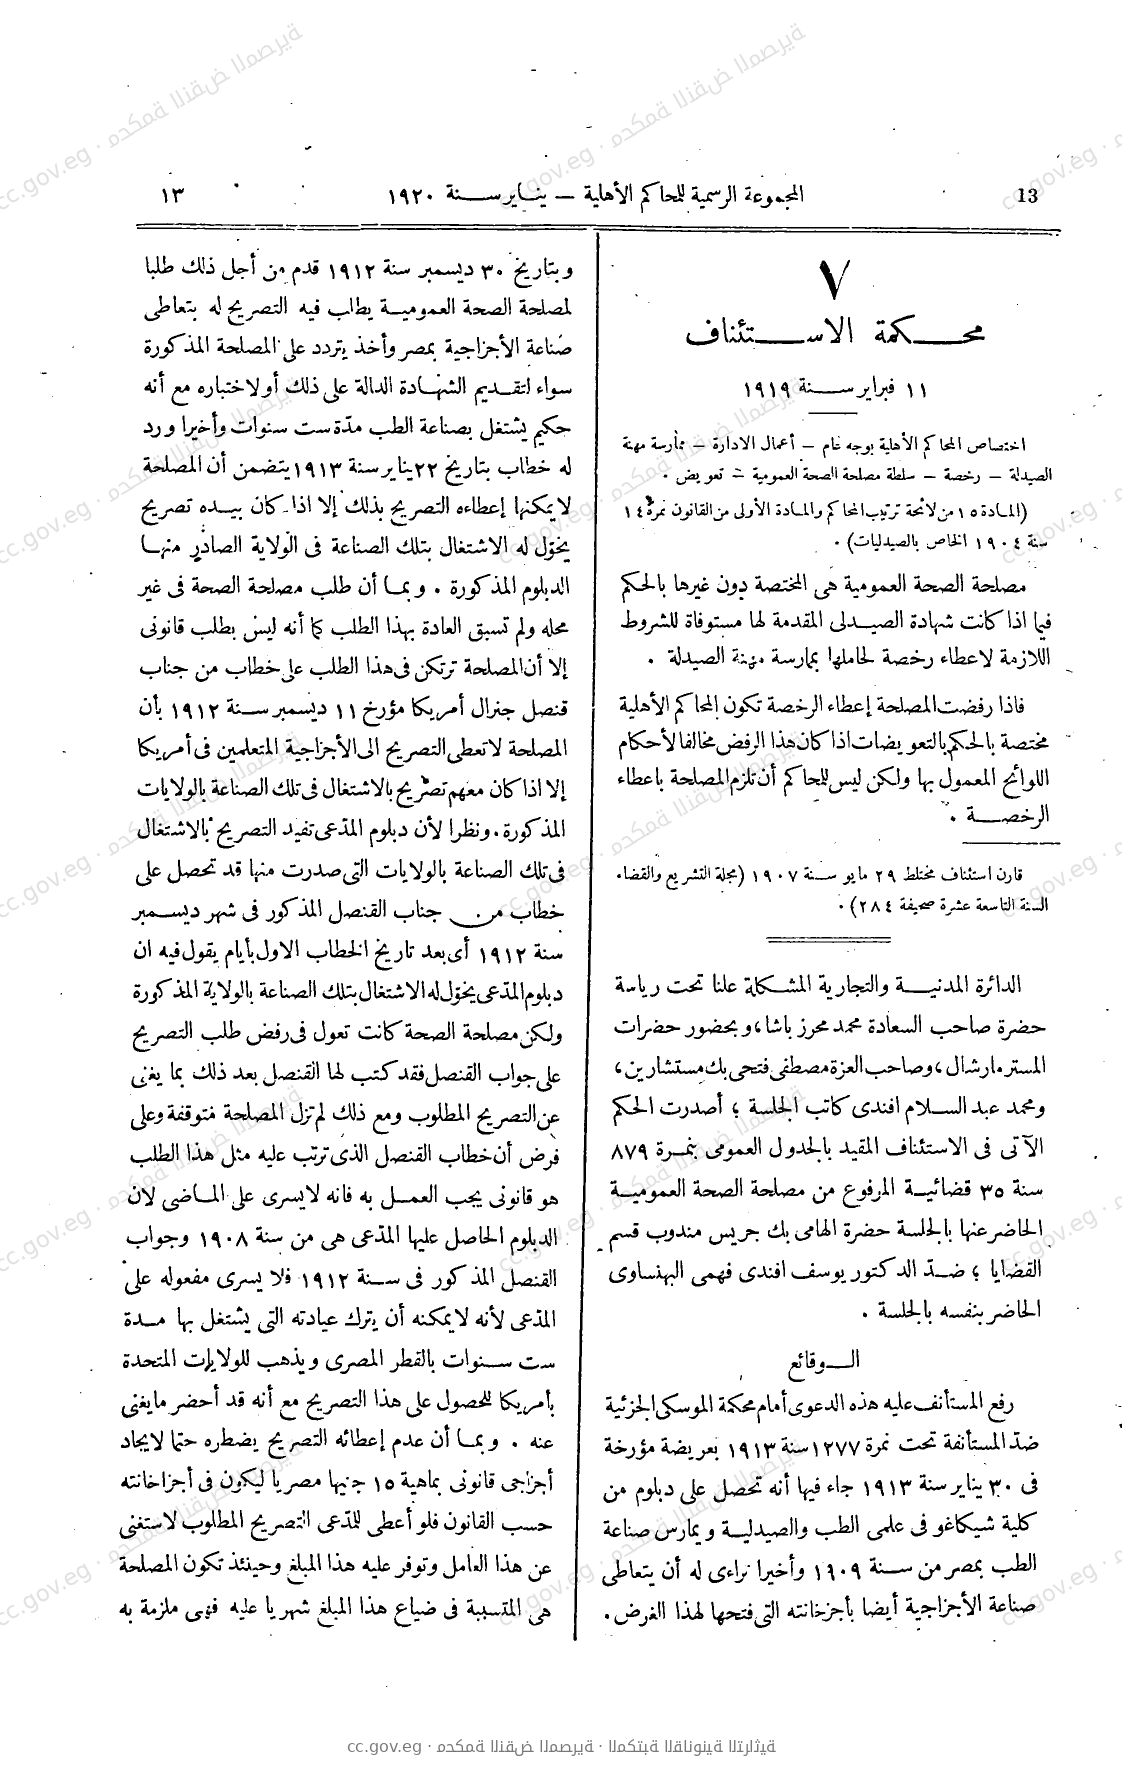 13
المجموعة الرسمية للمحاكم الأهلية — يناير سنة ١٩٢٠
١٣
٧
محكمة الاستئناف
١١ فبراير سنة ١٩١٩
اختصاص المحاكم الأهلية بوجه عام — أعمال الادارة — ممارسة مهنة
الصيدلة — رخصة — سلطة مصلحة الصحة العمومية — تعويض .
(المادة ١٥ من لائحة ترتيب المحاكم والمادة الأولى من القانون نمرة ١٤
سنة ١٩٠٤ الخاص بالصيدليات) .
مصلحة الصحة العمومية هى المختصة دون غيرها بالحكم
فيما اذا كانت شهادة الصيدلى المقدمة لها مستوفاة للشروط
اللازمة لاعطاء رخصة لحاملها بممارسة مهنة الصيدلة .
فاذا رفضت المصلحة إعطاء الرخصة تكون المحاكم الأهلية
مختصة بالحكم بالتعويضات اذا كان هذا الرفض مخالفا لأحكام
اللوائح المعمول بها ولكن ليس للمحاكم أن تلزم المصلحة باعطاء
الرخصة .
قارن استئناف مختلط ٢٩ مايو سنة ١٩٠٧ (مجلة التشريع والقضاء
السنة التاسعة عشرة صحيفة ٢٨٤) .
الدائرة المدنية والتجارية المشكلة علنا تحت رياسة
حضرة صاحب السعادة محمد محرز باشا، وبحضور حضرات
المستر مارشال، وصاحب العزة مصطفى فتحى بك مستشارين،
ومحمد عبد السلام افندى كاتب الجلسة ؛ أصدرت الحكم
الآتى فى الاستئناف المقيد بالجدول العمومى بنمرة ٨٧٩
سنة ٣٥ قضائية المرفوع من مصلحة الصحة العمومية
الحاضر عنها بالجلسة حضرة الهامى بك جريس مندوب قسم
القضايا ؛ ضد الدكتور يوسف افندى فهمى البهنساوى
الحاضر بنفسه بالجلسة .
الوقائع
رفع المستأنف عليه هذه الدعوى أمام محكمة الموسكى الجزئية
ضد المستأنفة تحت نمرة ١٢٧٧ سنة ١٩١٣ بعريضة مؤرخة
فى ٣٠ يناير سنة ١٩١٣ جاء فيها أنه تحصل على دبلوم من
كلية شيكاغو فى علمى الطب والصيدلية ويمارس صناعة
الطب بمصر من سنة ١٦٠٩ وأخيرا تراءى له أن يتعاطى
صناعة الأجزاجية أيضا بأجزخانته التى فتحها لهذا الغرض.
وبتاريخ ٣٠ ديسمبر سنة ١٩١٢ قدم من أجل ذلك طلبا
لمصلحة الصحة العمومية يطلب فيه التصريح له بتعاطى
صناعة الأجزاجية بمصر وأخذ يتردد على المصلحة المذكورة
سواء لتقديم الشهادة الدالة على ذلك أو لاختباره مع أنه
حكيم يشتغل بصناعة الطب مدّة ست سنوات وأخيرا ورد
له خطاب بتاريخ ٢٢ يناير سنة ١٩١٣ يتضمن أن المصلحة
لا يمكنها إعطاءه التصريح بذلك إلا اذا كان بيده تصريح
يخوّل له الاشتغال بتلك الصناعة فى الولاية الصادر منها
الدبلوم المذكورة . وبما أن طلب مصلحة الصحة فى غير
محله ولم تسبق العادة بهذا الطلب كما أنه ليس بطلب قانونى
إلا أن المصلحة ترتكن فى هذا الطلب على خطاب من جناب
قنصل جنرال أمريكا مؤرخ ١١ ديسمبر سنة ١٩١٢ بأن
المصلحة لا تعطى التصريح الى الأجزاجية المتعلمين فى أمريكا
إلا اذا كان معهم تصريح بالاشتغال فى تلك الصناعة بالولايات
المذكورة. ونظرا لأن دبلوم المدّعى تفيد التصريح بالاشتغال
فى تلك الصناعة بالولايات التى صدرت منها قد تحصل على
خطاب من جناب القنصل المذكور فى شهر ديسمبر
سنة ١٩١٢ أى بعد تاريخ الخطاب الاول بأيام يقول فيه ان
دبلوم المدّعى يخوّل له الاشتغال بتلك الصناعة بالولاية المذكورة
ولكن مصلحة الصحة كانت تعول فى رفض طلب التصريح
على جواب القنصل فقد كتب لها القنصل بعد ذلك بما يغنى
عن التصريح المطلوب ومع ذلك لم تزل المصلحة متوقفة وعلى
فرض أن خطاب القنصل الذى ترتب عليه مثل هذا الطلب
هو قانونى يجب العمل به فانه لا يسرى على الماضى لان
الدبلوم الحاصل عليها المدّعى هى من سنة ١٩٠٨ وجواب
القنصل المذكور فى سنة ١٩١٢ فلا يسرى مفعوله على
المدّعى لأنه لا يمكنه أن يترك عيادته التى يشتغل بها مدة
ست سنوات بالقطر المصرى ويذهب للولايات المتحدة
بأمريكا للحصول على هذا التصريح مع أنه قد أحضر ما يغنى
عنه . وبما أن عدم إعطائه التصريح يضطره حتما لايجاد
أجزاجى قانونى بماهية ١٥ جنيها مصريا ليكون فى أجزاخانته
حسب القانون فلو أعطى للمدّعى التصريح المطلوب لاستغنى
عن هذا العامل وتوفر عليه هذا المبلغ وحينئذ تكون المصلحة
هى المتسببة فى ضياع هذا المبلغ شهريا عليه فهى ملزمة به
cc.gov.eg · محكمة النقض المصرية · المكتبة القانونية التراثية